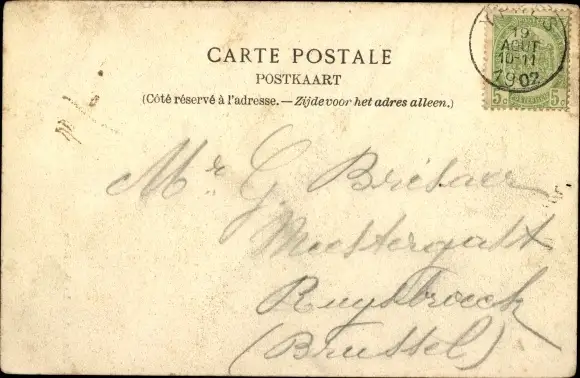 CARTE POSTALE
POSTKAART
(Côté réservé à l'adresse. — Zijde voor het adres alleen.)
19
AOUT
10-11
1902
5c 5c
Mr G. Brésaer
Meestergast
Ruysbroeck
(Brussel)